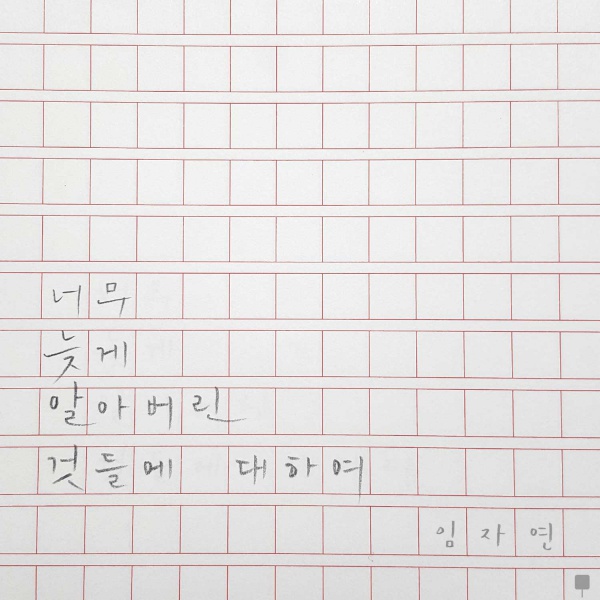 너무
늦게
알아버린
것들에 대하여
임자연